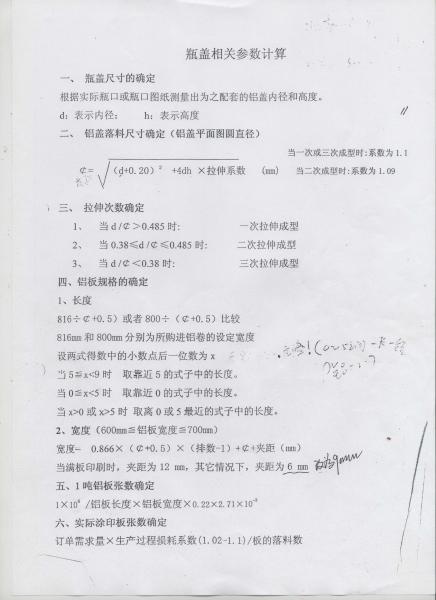 瓶盖相关参数计算
一、 瓶盖尺寸的确定
根据实际瓶口或瓶口图纸测量出为之配套的铝盖内径和高度。
d：表示内径； h：表示高度
二、 铝盖落料尺寸确定（铝盖平面图圆直径）
当一次或三次成型时:系数为 1.1
¢= √(d+0.20)² +4dh ×拉伸系数 (mm) 当二次成型时:系数为 1.09
三、 拉伸次数确定
1、 当 d /¢＞0.485 时: 一次拉伸成型
2、 当 0.38≦d /¢≦0.485 时: 二次拉伸成型
3、 当 d /¢＜0.38 时: 三次拉伸成型
四、铝板规格的确定
1、长度
816÷¢+0.5）或者 800÷（¢+0.5）比较
816mm 和 800mm 分别为所购进铝卷的设定宽度
设两式得数中的小数点后一位数为 x
当 5≦x<9 时 取靠近 5 的式子中的长度。
当 0≦x<5 时 取靠近 0 的式子中的长度。
当 x>0 或 x>5 时 取离 0 或 5 最近的式子中的长度。
2、宽度（600mm≦铝板宽度≦700mm）
宽度= 0.866×（¢+0.5）×（排数-1）+¢+夹距（mm）
当满板印刷时，夹距为 12 mm，其它情况下，夹距为 6 mm 改为9mm
五、1 吨铝板张数确定
1×10⁶ /铝板长度×铝板宽度×0.22×2.71×10⁻³
六、实际涂印板张数确定
订单需求量×生产过程损耗系数(1.02-1.1)/板的落料数